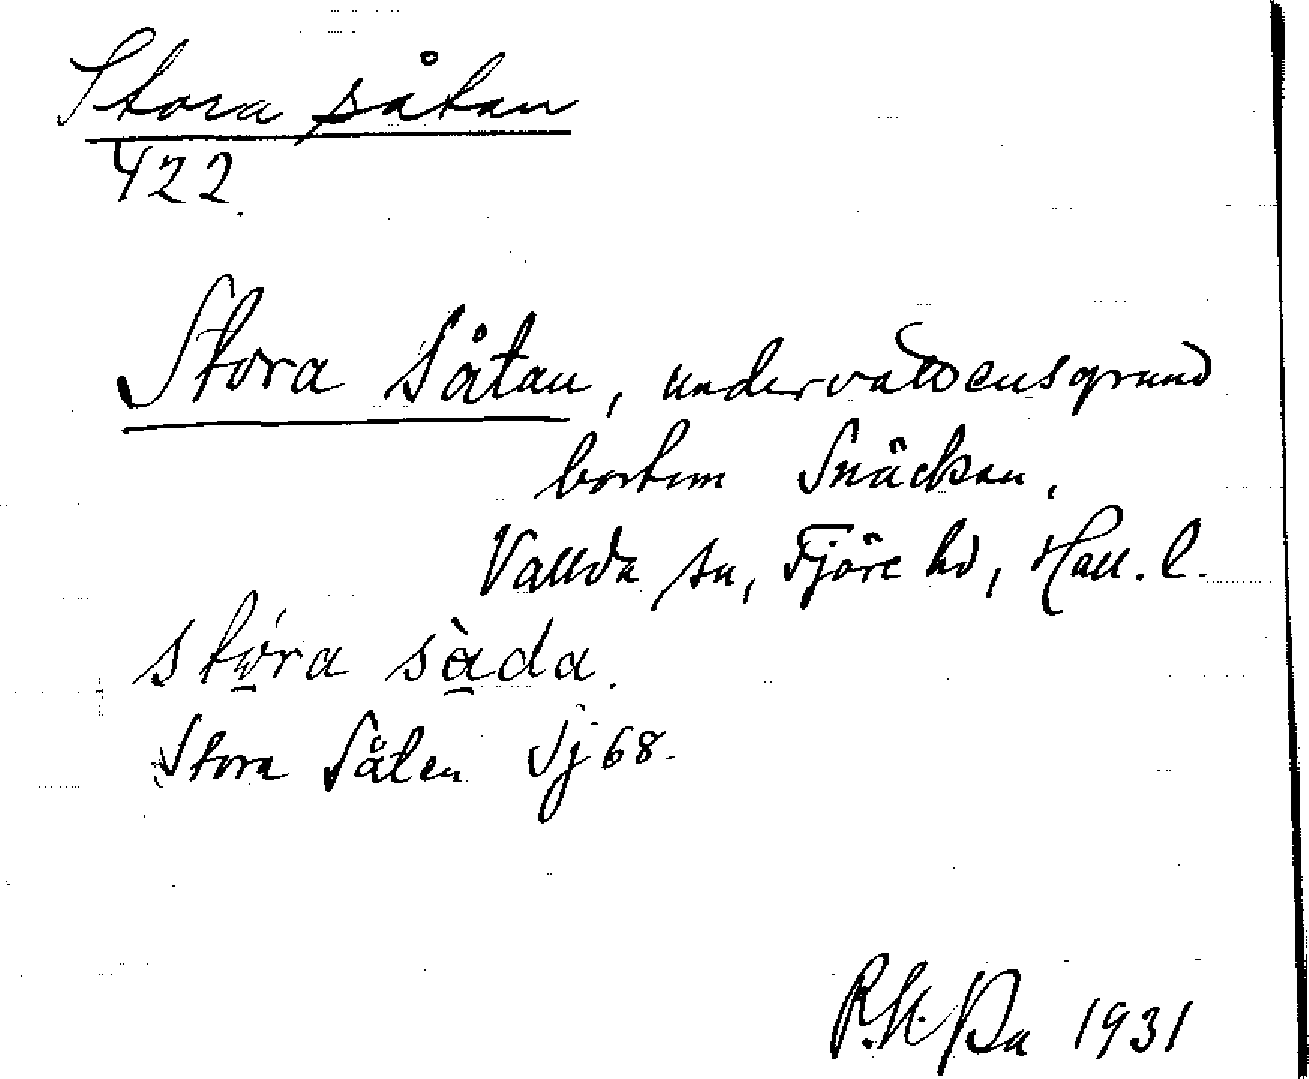 Stora såtan
422.
Stora Såtan, undervattensgrund
bortom Snäckan,
Vallda sn, Fjäre hd, Hall. l.
stọ́ra sà̱da.
Stora Såten Sj 68.
1931